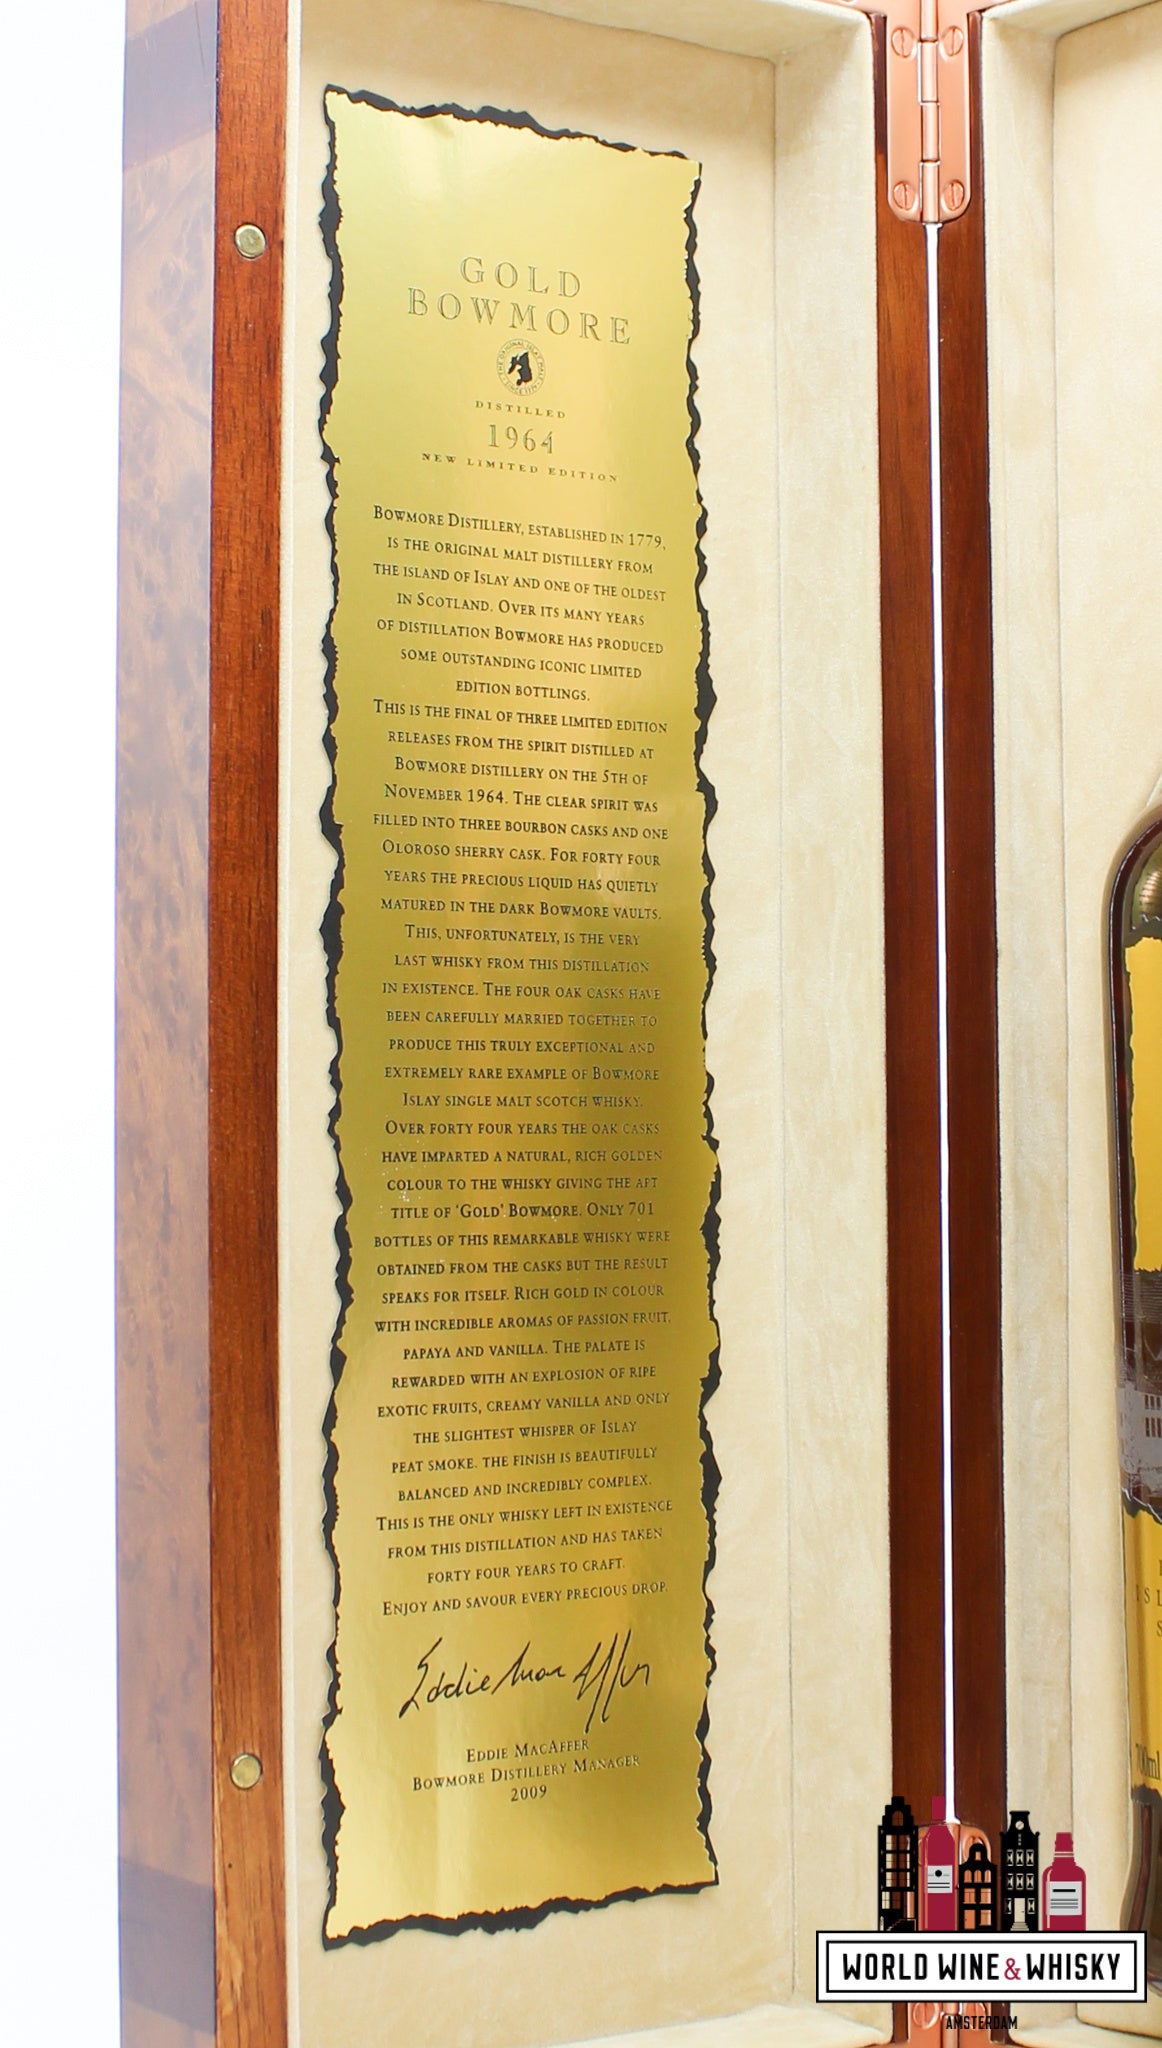 GOLD
BOWMORE
THE ORIGINAL ISLAY MALT
SINCE 1779
DISTILLED
1964
NEW LIMITED EDITION
BOWMORE DISTILLERY, ESTABLISHED IN 1779,
IS THE ORIGINAL MALT DISTILLERY FROM
THE ISLAND OF ISLAY AND ONE OF THE OLDEST
IN SCOTLAND. OVER ITS MANY YEARS
OF DISTILLATION BOWMORE HAS PRODUCED
SOME OUTSTANDING ICONIC LIMITED
EDITION BOTTLINGS.
THIS IS THE FINAL OF THREE LIMITED EDITION
RELEASES FROM THE SPIRIT DISTILLED AT
BOWMORE DISTILLERY ON THE 5TH OF
NOVEMBER 1964. THE CLEAR SPIRIT WAS
FILLED INTO THREE BOURBON CASKS AND ONE
OLOROSO SHERRY CASK. FOR FORTY FOUR
YEARS THE PRECIOUS LIQUID HAS QUIETLY
MATURED IN THE DARK BOWMORE VAULTS.
THIS, UNFORTUNATELY, IS THE VERY
LAST WHISKY FROM THIS DISTILLATION
IN EXISTENCE. THE FOUR OAK CASKS HAVE
BEEN CAREFULLY MARRIED TOGETHER TO
PRODUCE THIS TRULY EXCEPTIONAL AND
EXTREMELY RARE EXAMPLE OF BOWMORE
ISLAY SINGLE MALT SCOTCH WHISKY.
OVER FORTY FOUR YEARS THE OAK CASKS
HAVE IMPARTED A NATURAL, RICH GOLDEN
COLOUR TO THE WHISKY GIVING THE APT
TITLE OF 'GOLD' BOWMORE. ONLY 701
BOTTLES OF THIS REMARKABLE WHISKY WERE
OBTAINED FROM THE CASKS BUT THE RESULT
SPEAKS FOR ITSELF. RICH GOLD IN COLOUR
WITH INCREDIBLE AROMAS OF PASSION FRUIT,
PAPAYA AND VANILLA. THE PALATE IS
REWARDED WITH AN EXPLOSION OF RIPE
EXOTIC FRUITS, CREAMY VANILLA AND ONLY
THE SLIGHTEST WHISPER OF ISLAY
PEAT SMOKE. THE FINISH IS BEAUTIFULLY
BALANCED AND INCREDIBLY COMPLEX.
THIS IS THE ONLY WHISKY LEFT IN EXISTENCE
FROM THIS DISTILLATION AND HAS TAKEN
FORTY FOUR YEARS TO CRAFT.
ENJOY AND SAVOUR EVERY PRECIOUS DROP.
Eddie MacAffer
EDDIE MACAFFER
BOWMORE DISTILLERY MANAGER
2009
700ml
WORLD WINE & WHISKY
AMSTERDAM